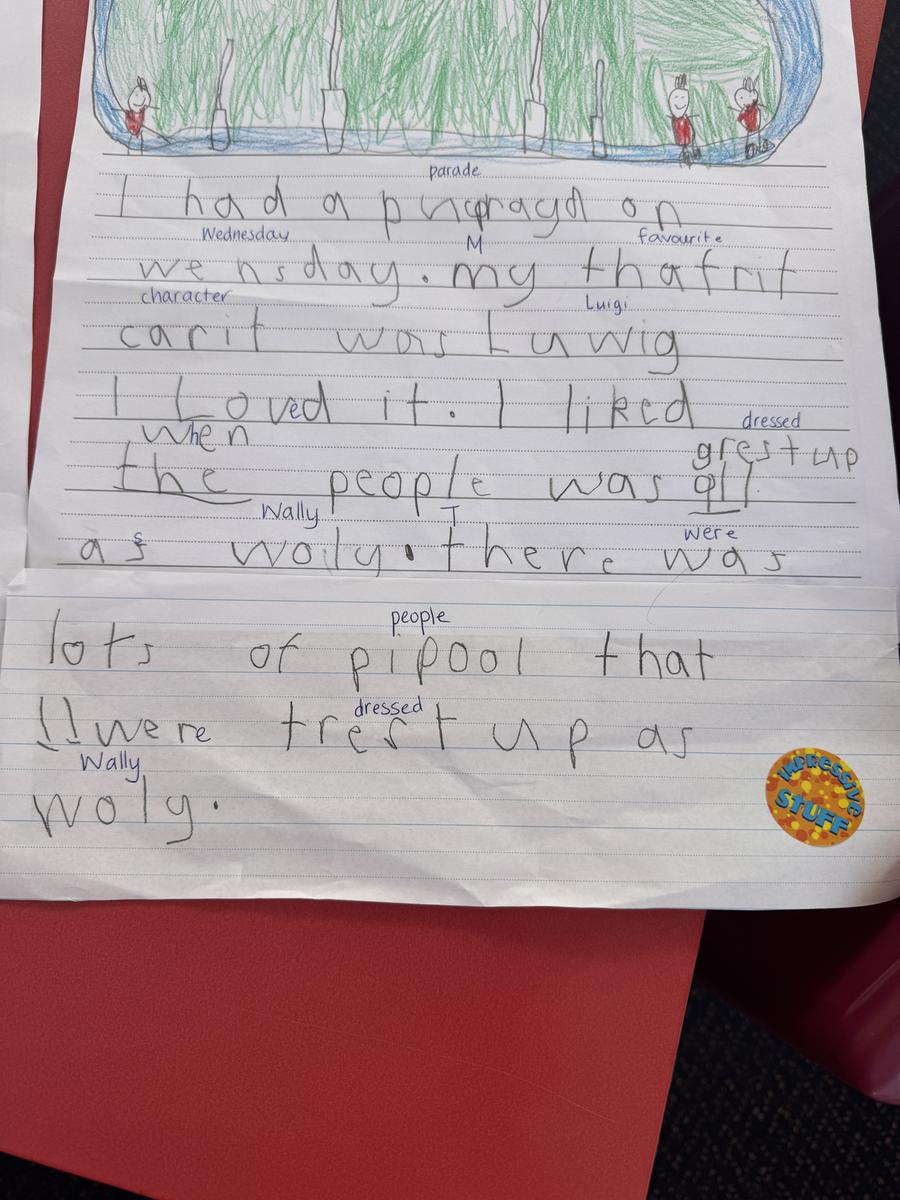 parade
I had a pnapragd on
Wednesday M favourite
wensday. my thafrit
character Luigi
carit was Luwig
I Loved it. I liked
when dressed
grest up
the people was all
Wally T were
as woily. there was
people
lots of pipool that
!! were trest up as
dressed
Wally
woly.
IMPRESSIVE
STUFF